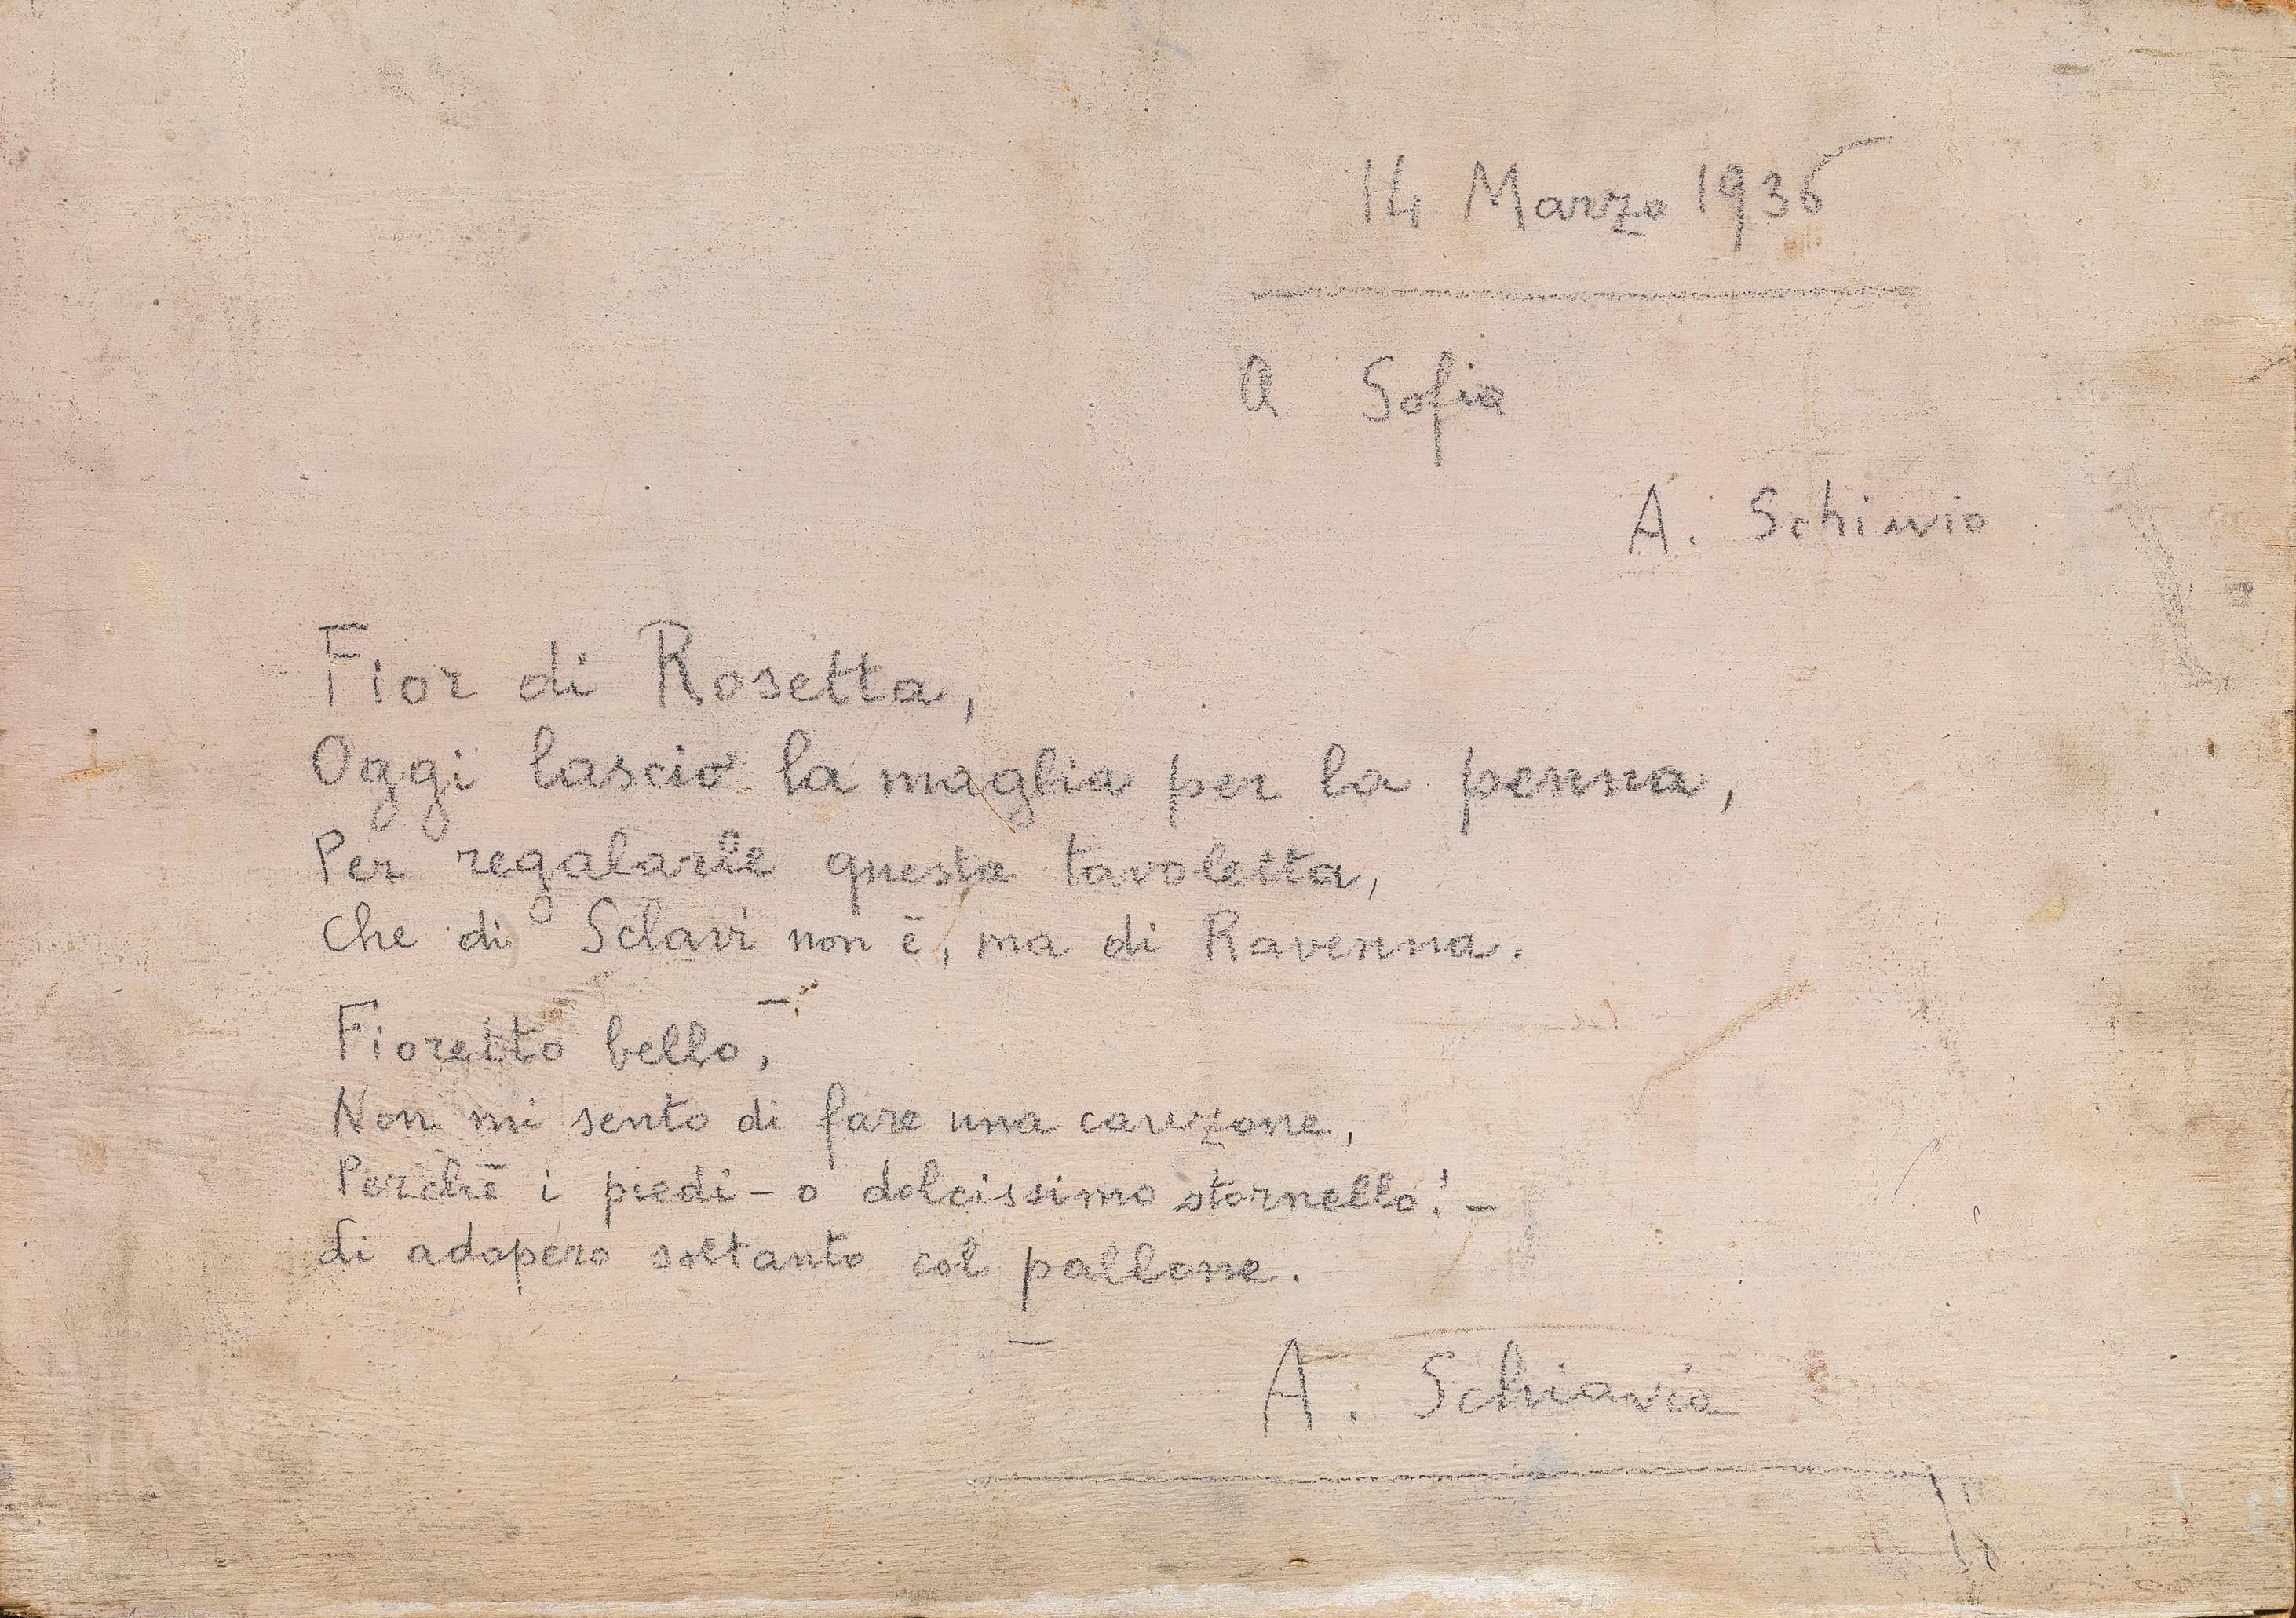 14 Marzo 1936
A Sofia
A. Schiavio
Fior di Rosetta,
Oggi lascio la maglia per la penna,
Per regalarti questa tavoletta,
Che di Sclavi non è, ma di Ravenna.
—
Fioretto bello,
Non mi sento di fare una canzone,
Perchè i piedi - o dolcissimo stornello! -
li adopero soltanto col pallone.
—
A. Schiavio